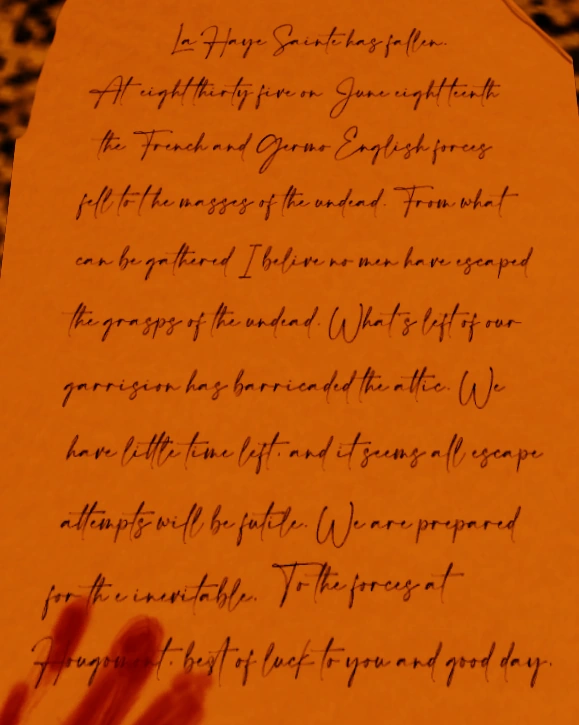 La Haye Sainte has fallen.
At eight thirty five on June eightteenth
the French and Germo English forces
fell to the masses of the undead. From what
can be gathered I belive no men have escaped
the grasps of the undead. What's left of our
garrision has barricaded the attic. We
have little time left. and it seems all escape
attempts will be futile. We are prepared
for the inevitable. To the forces at
Hougomont. best of luck to you and good day.